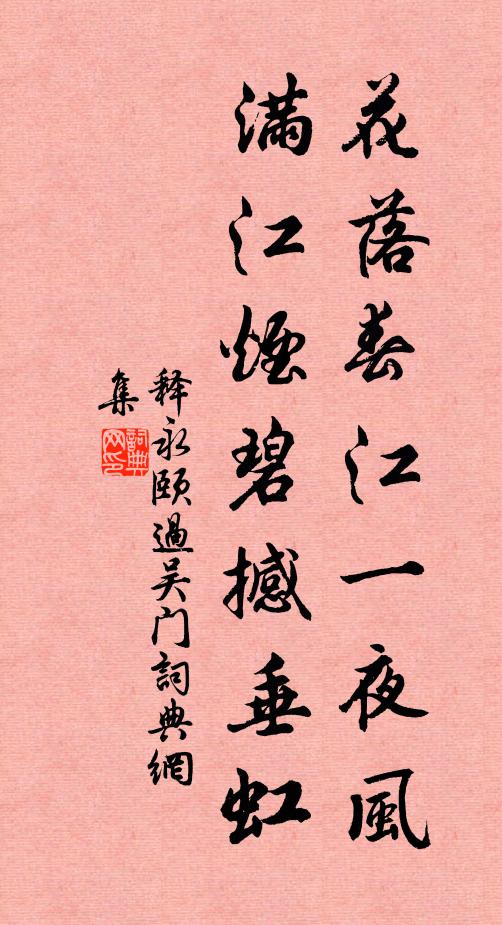 花落春江一夜風
滿江煙碧撼垂虹
释永頤過吴门詞典網
集
詞典網印